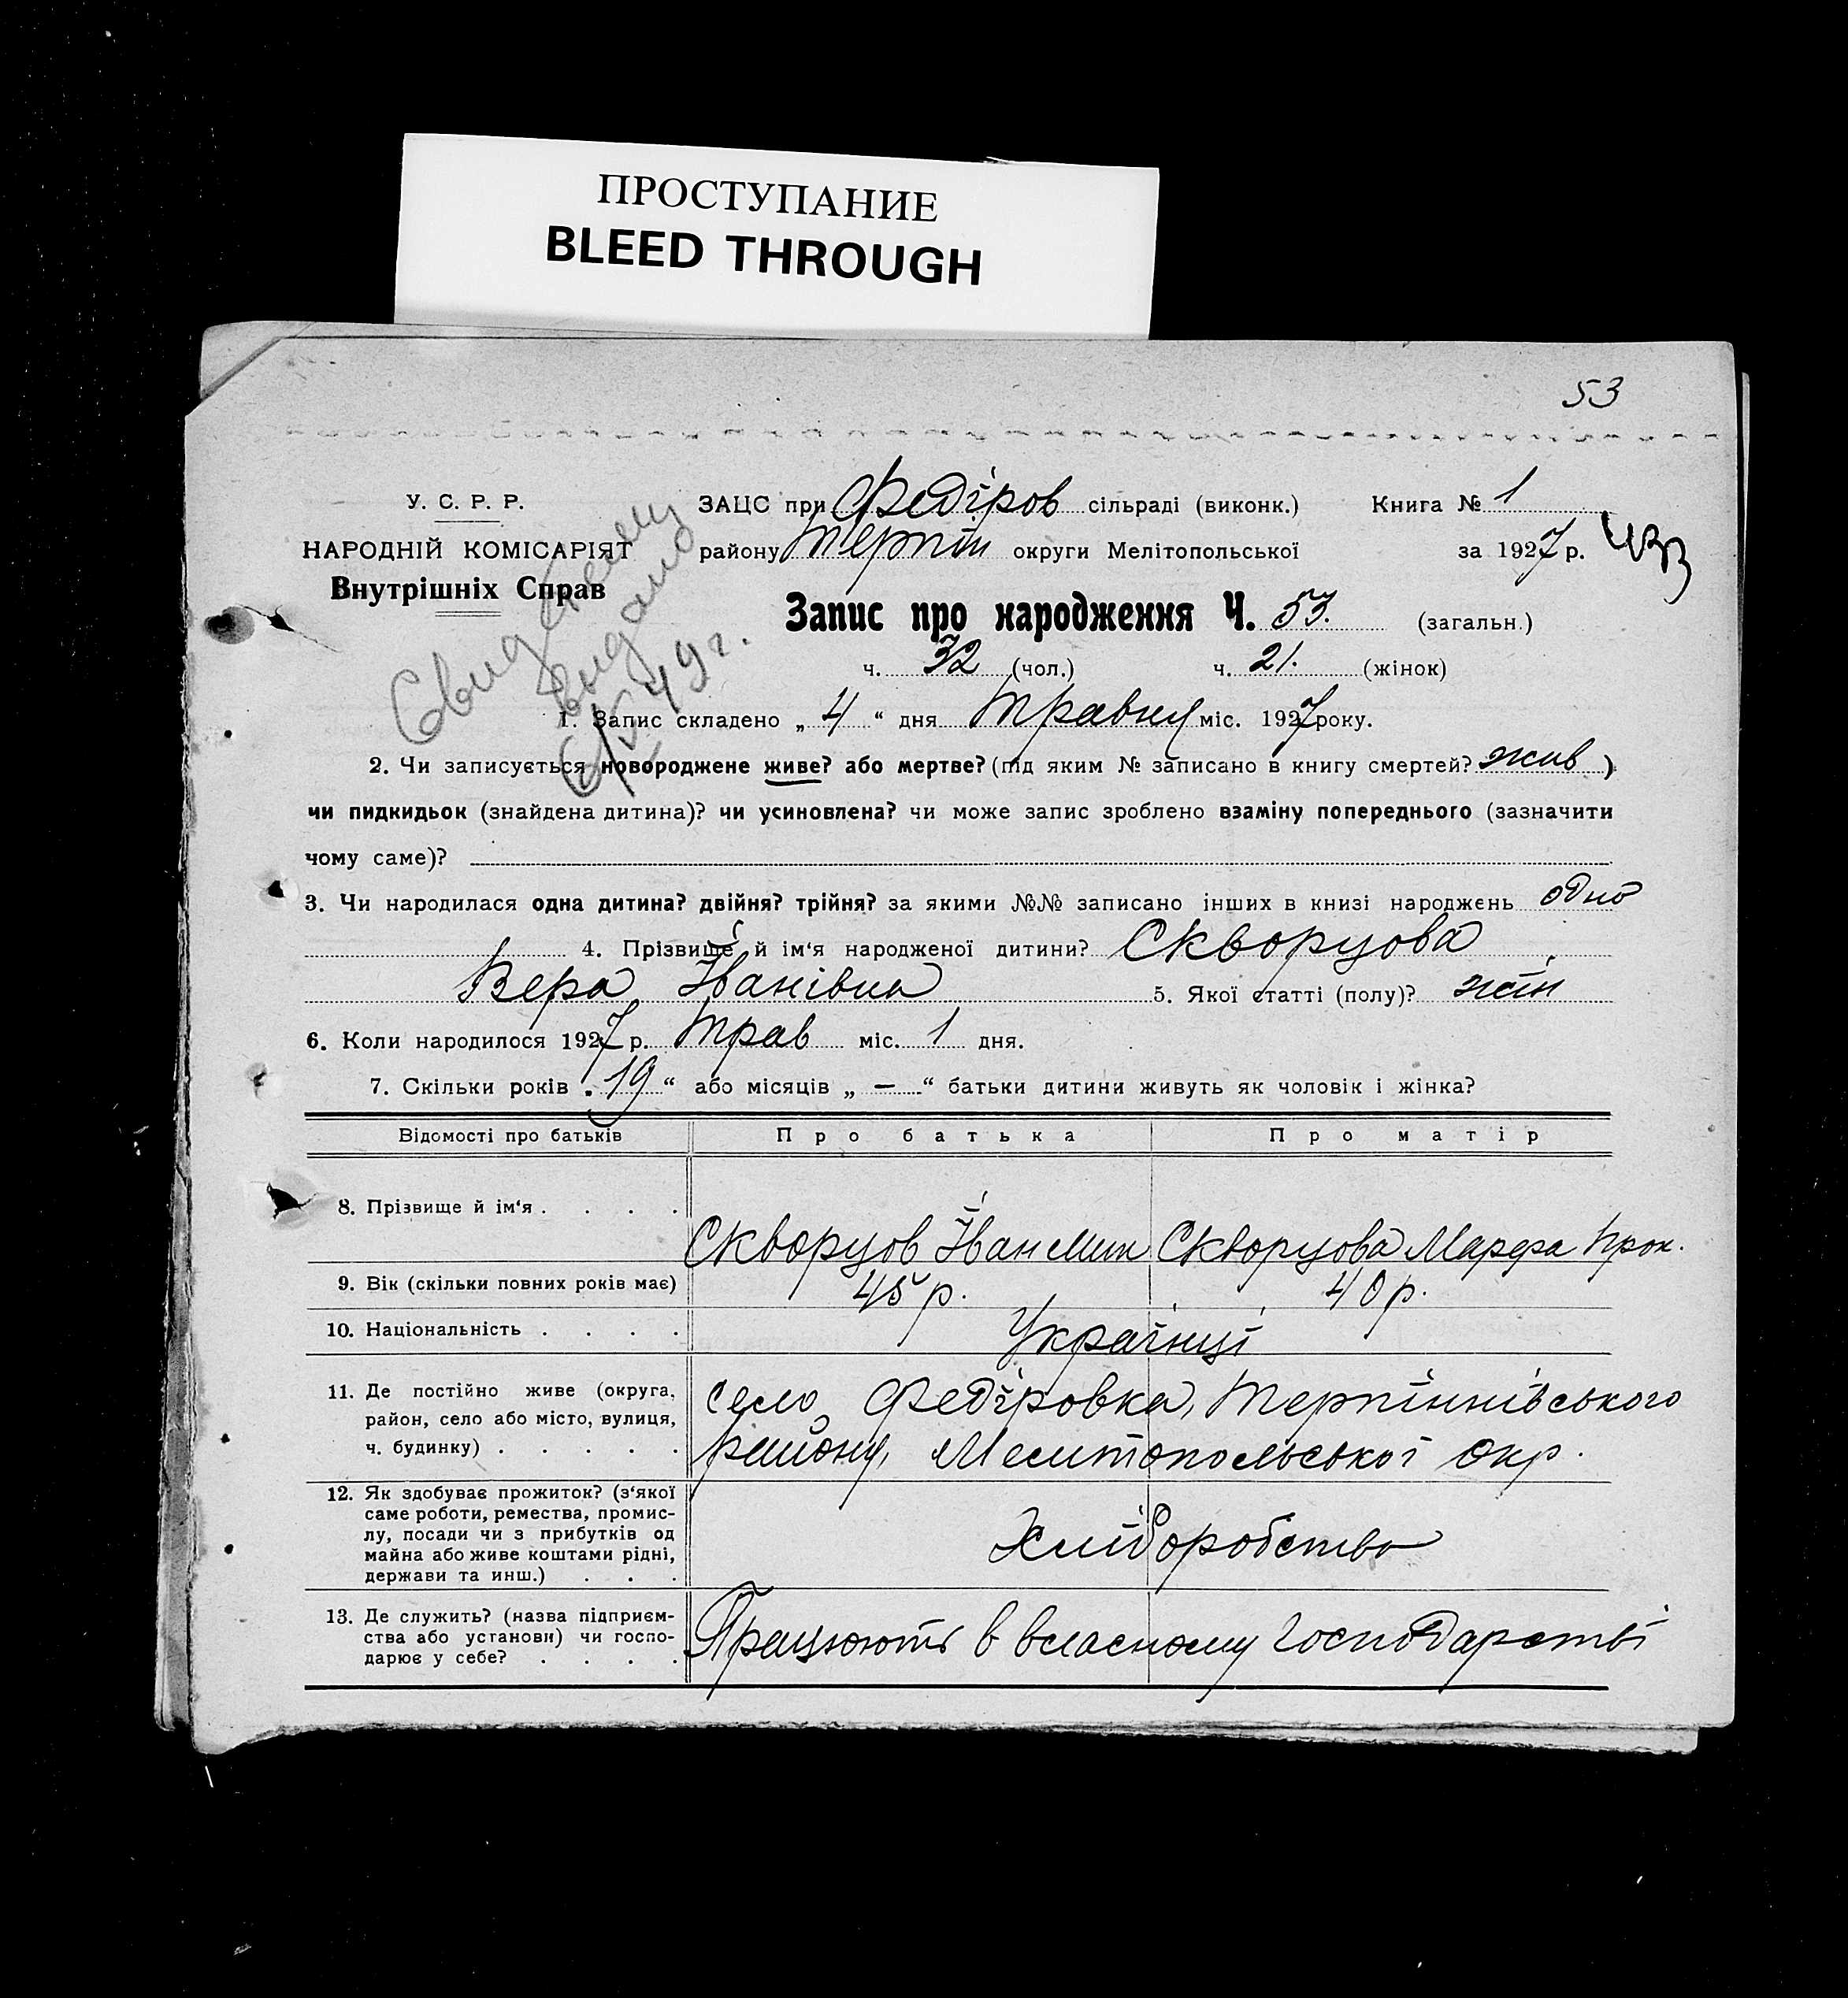 ПРОСТУПАНИЕ
BLEED THROUGH
53
У. С. Р. Р.
НАРОДНІЙ КОМІСАРІЯТ
Внутрішніх Справ
ЗАЦС при Федіров сільраді (виконк.) Книга № 1
району Терпін округи Мелітопольської за 1927 р.
Запис про народження Ч. 53. (загальн.)
ч. 32 (чол.) ч. 21. (жінок)
выдано
49 г.
1. Запис складено „ 4 “ дня Травня міс. 1927 року.
2. Чи записується новороджене живе? або мертве? (під яким № записано в книгу смертей? жив )
чи пидкидьок (знайдена дитина)? чи усиновлена? чи може запис зроблено взаміну попереднього (зазначити
чому саме)?
3. Чи народилася одна дитина? двійня? трійня? за якими №№ записано інших в книзі народжень одно
4. Прізвище й ім‘я народженої дитини? Скворцова
Вера Іванівна 5. Якої статті (полу)? жін
6. Коли народилося 1927 р. Трав міс. 1 дня.
7. Скільки років „ 19 “ або місяців „ — “ батьки дитини живуть як чоловік і жінка?
Відомості про батьків Про батька Про матір
8. Прізвище й ім‘я . . . . Скворцов Іван Мик Скворцова Марфа Прок.
9. Вік (скільки повних років має) 45 р. 40 р.
10. Національність . . . . Українці
11. Де постійно живе (округа, село Федіровка, Терпіннівського
район, село або місто, вулиця, району, Мелитопольської окр.
ч. будинку) . . . . .
12. Як здобуває прожиток? (з‘якої
саме роботи, ремества, промис-
лу, посади чи з прибутків од
майна або живе коштами рідні, Хліборобство
держави та инш.) . . .
13. Де служить? (назва підприєм-
ства або установи) чи госпо- Працюють в власному господарстві
дарює у себе? . . . .